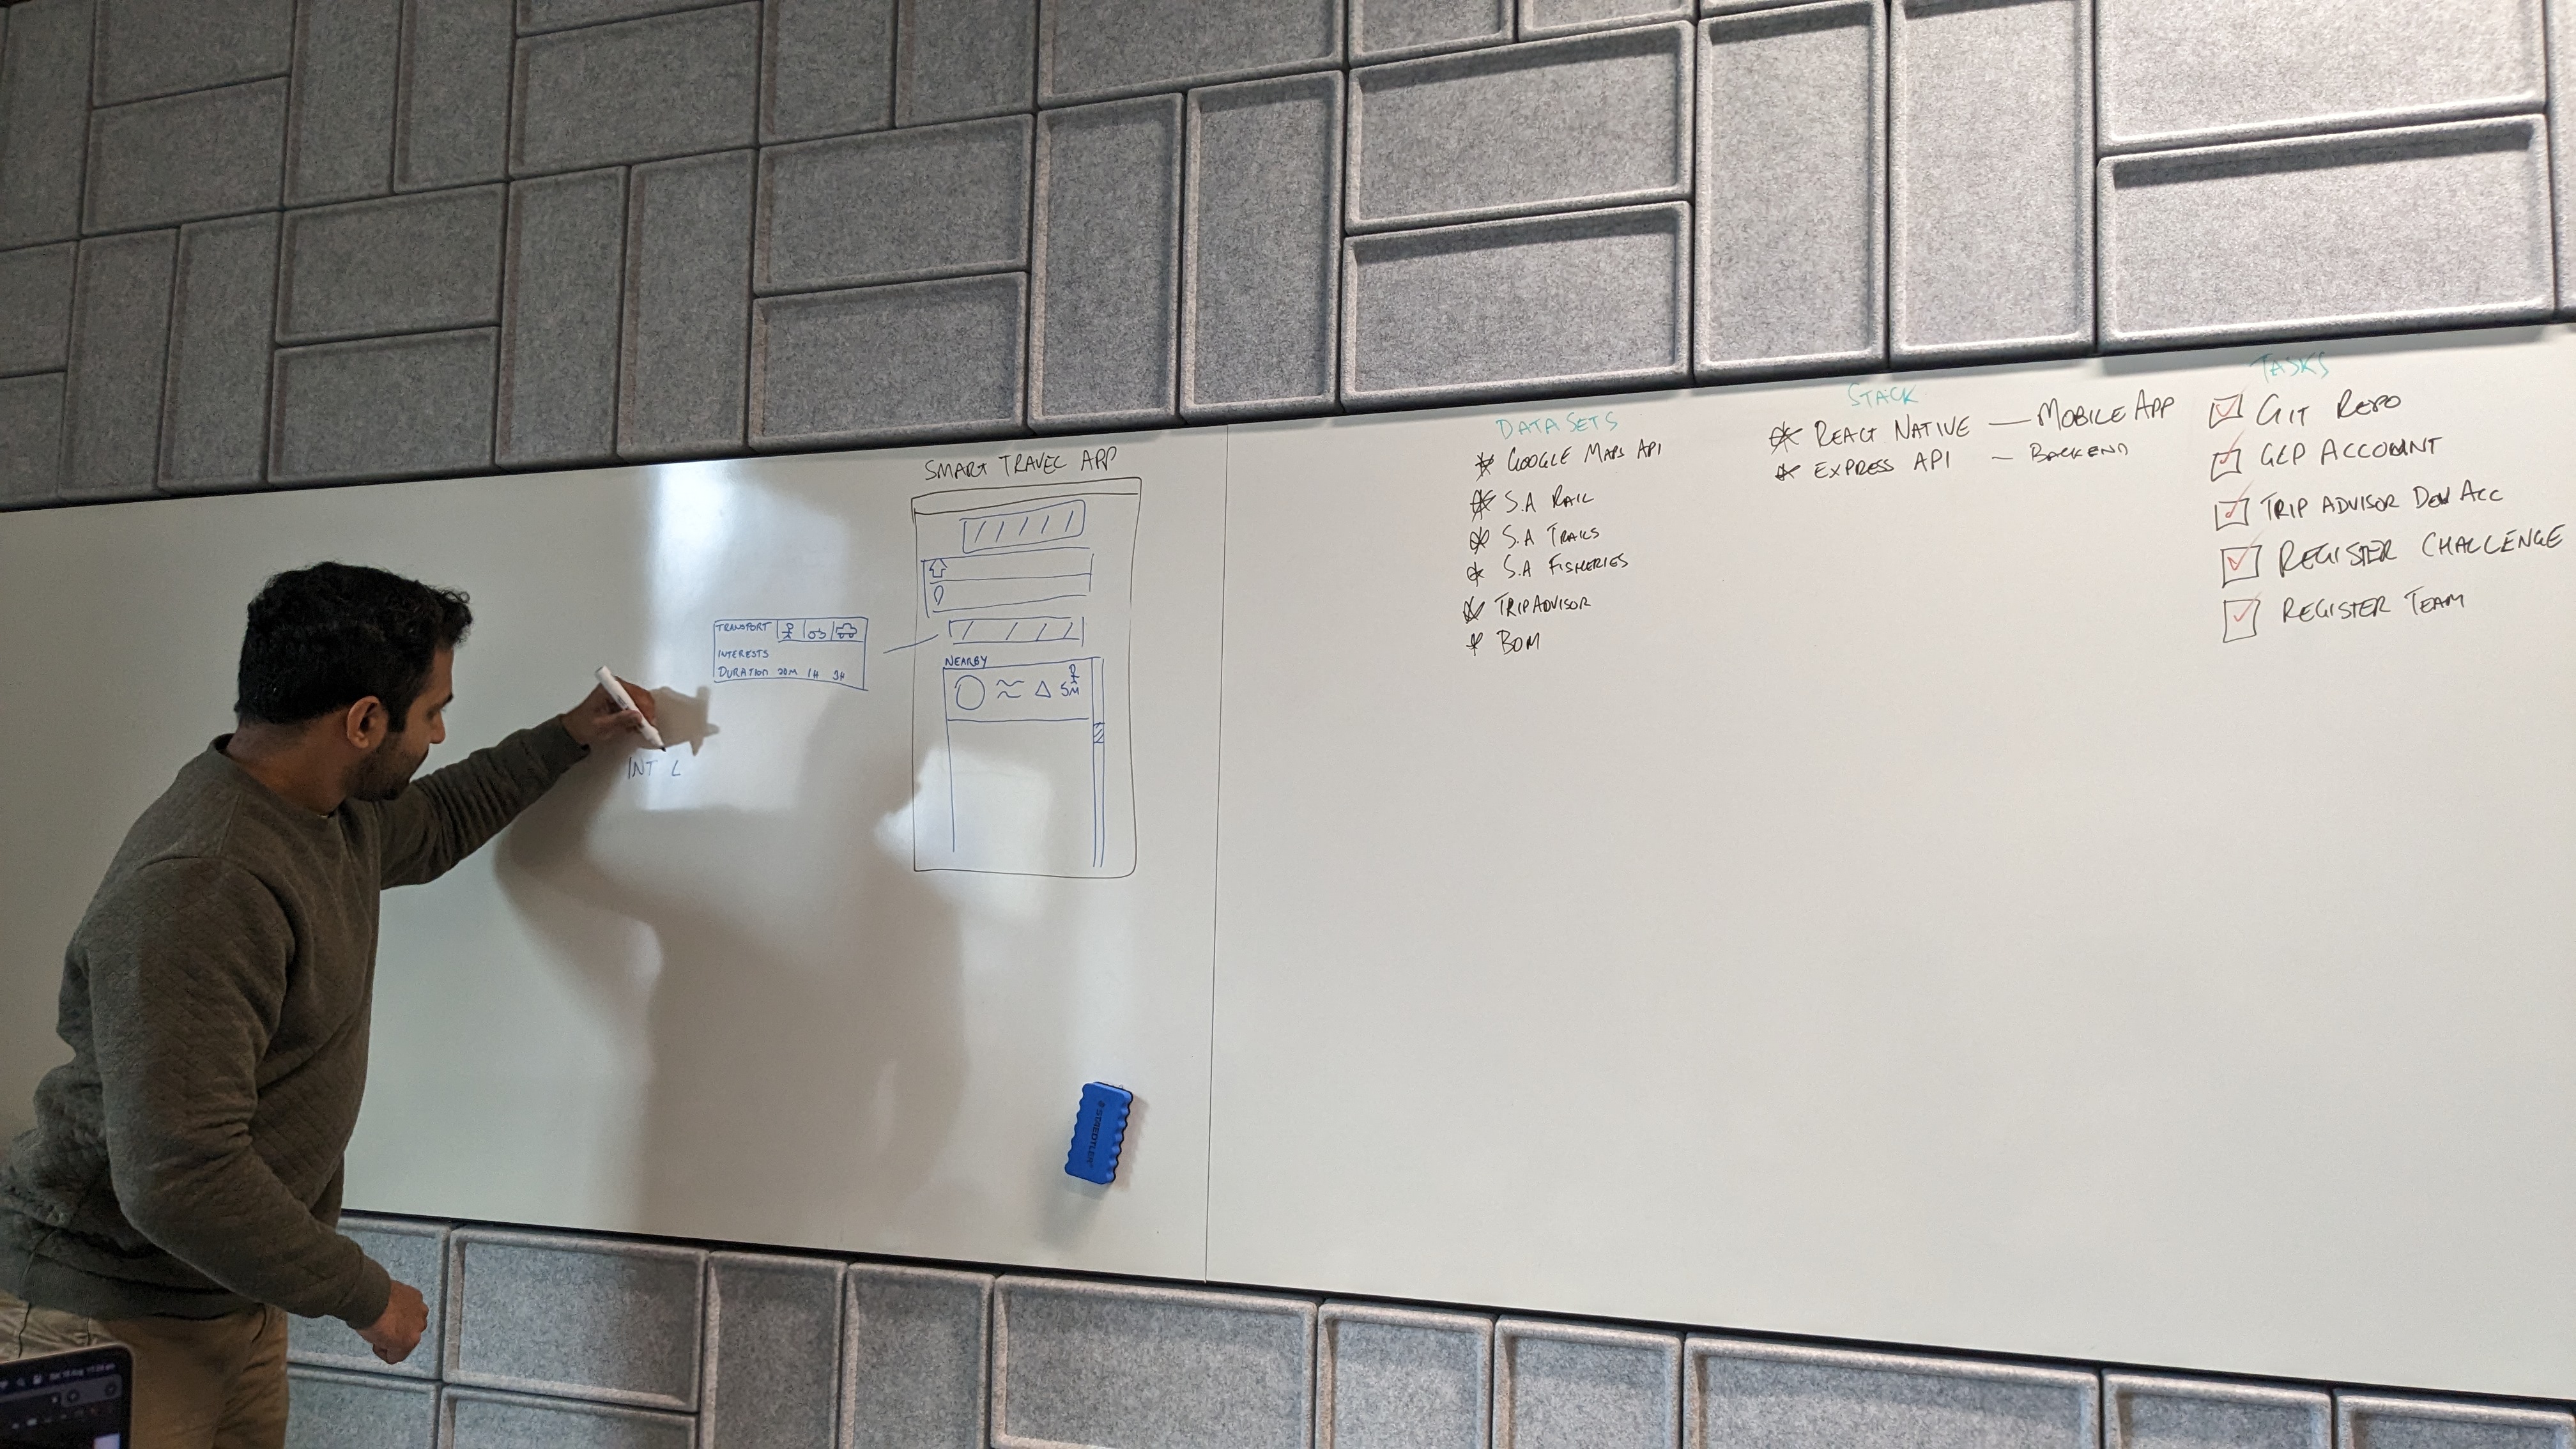 SMART TRAVEL APP
TRANSPORT
INTERESTS
DURATION 20M 1H 3H
NEARBY
5M
INT L
STAEDTLER
DATA SETS
* GOOGLE MAPS API
* S.A RAIL
* S.A TRAILS
* S.A FISHERIES
* TRIPADVISOR
* BOM
STACK
* REACT NATIVE — MOBILE APP
* EXPRESS API - BACKEND
TASKS
GIT REPO
GCP ACCOUNT
TRIP ADVISOR DEV ACC
REGISTER CHALLENGE
REGISTER TEAM